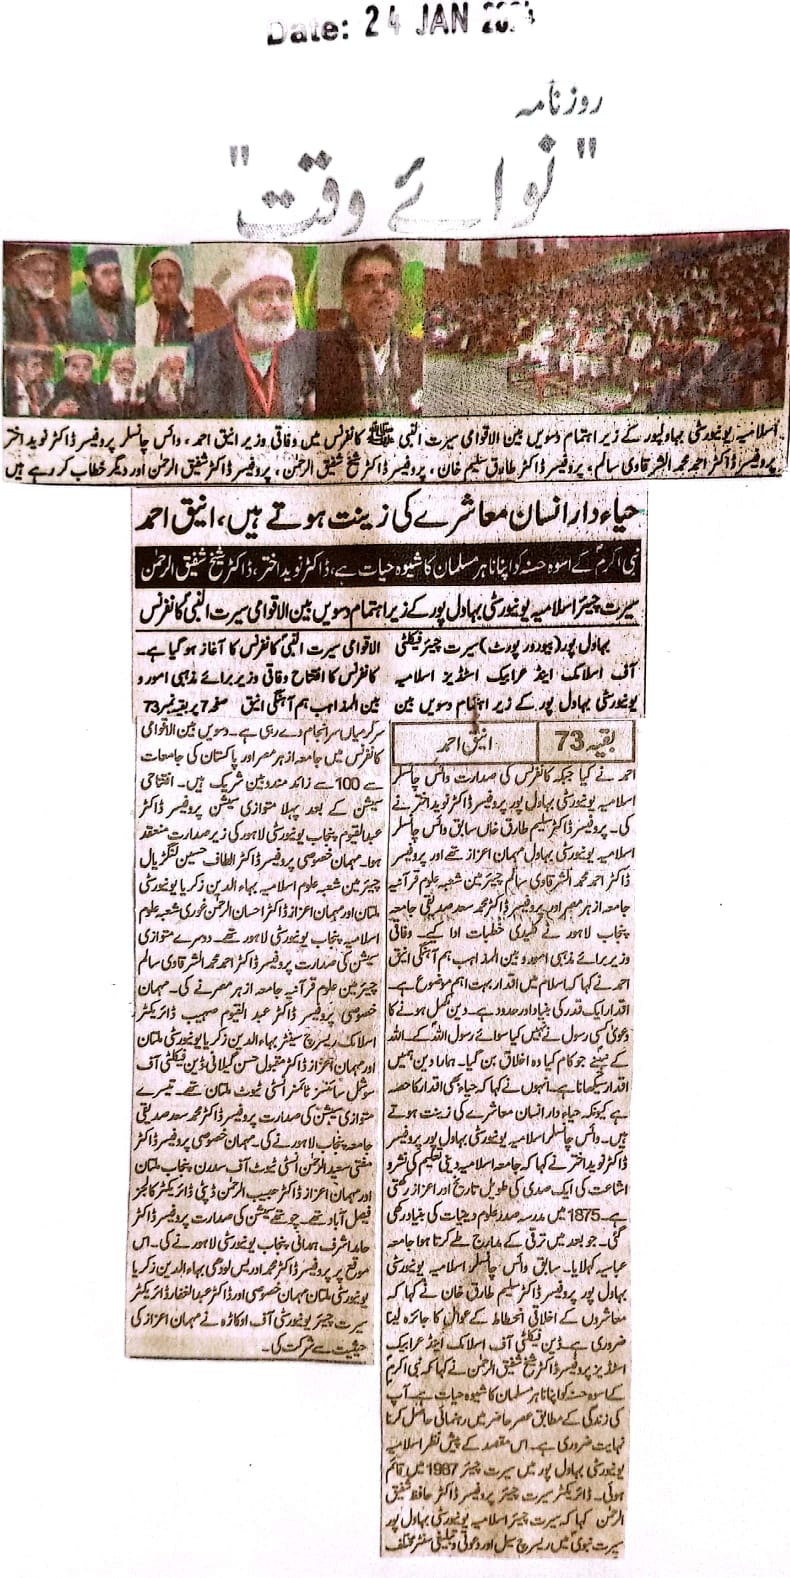 Date: 24 JAN
روزنامہ
"نوائے وقت"
اسلامیہ یونیورسٹی بہاولپور کے زیر اہتمام دسویں بین الاقوامی سیرت النبی ﷺ کانفرنس میں وفاقی وزیر انیق احمد، وائس چانسلر پروفیسر ڈاکٹر نوید اختر
پروفیسر ڈاکٹر احمد محمد الشرقاوی سالم، پروفیسر ڈاکٹر طارق سلیم خان، پروفیسر ڈاکٹر شیخ شفیق الرحمٰن، پروفیسر ڈاکٹر شفیق الرحمٰن اور دیگر خطاب کر رہے ہیں
حیاء دار انسان معاشرے کی زینت ہوتے ہیں، انیق احمد
نبی اکرمؐ کے اسوہ حسنہ کو اپنانا ہر مسلمان کا شیوہ حیات ہے، ڈاکٹر نوید اختر، ڈاکٹر شیخ شفیق الرحمٰن
سیرت چیئر اسلامیہ یونیورسٹی بہاول پور کے زیر اہتمام دسویں بین الاقوامی سیرت النبیؐ کانفرنس
بہاول پور (بیورو رپورٹ) سیرت چیئر فیکلٹی
آف اسلامک اینڈ عرابیک اسٹڈیز اسلامیہ
یونیورسٹی بہاول پور کے زیر اہتمام دسویں بین
الاقوامی سیرت النبیؐ کانفرنس کا آغاز ہو گیا ہے۔
کانفرنس کا افتتاح وفاقی وزیر برائے مذہبی امور و
بین المذاہب ہم آہنگی انیق صفحہ 7 پر بقیہ نمبر 73
بقیہ 73 انیق احمد
احمد نے کیا جبکہ کانفرنس کی صدارت وائس چانسلر
اسلامیہ یونیورسٹی بہاول پور پروفیسر ڈاکٹر نوید اختر نے
کی۔ پروفیسر ڈاکٹر سلیم طارق خاں سابق وائس چانسلر
اسلامیہ یونیورسٹی بہاول مہمان اعزاز تھے اور پروفیسر
ڈاکٹر احمد محمد الشرقاوی سالم چیئرمین شعبہ علوم قرآنیہ
جامعہ ازہر مصر اور پروفیسر ڈاکٹر محمد سعد صدیقی جامعہ
پنجاب لاہور نے کلیدی خطبات ادا کیے۔ وفاقی
وزیر برائے مذہبی امور و بین المذاہب ہم آہنگی انیق
احمد نے کہا کہ اسلام میں اقدار بہت اہم موضوع ہے۔
اقدار ایک قدر کی بنیاد اور حدود ہے۔ دین مکمل ہونے کا
دعویٰ کسی رسول نے نہیں کیا سوائے رسول اللہ کے۔ اللہ
کے نبیؐ نے جو کام کیا وہ اخلاق بن گیا۔ ہمارا دین ہمیں
اقدار سکھاتا ہے۔ انہوں نے کہا کہ حیاء بھی اقدار کا حصہ
ہے کیونکہ حیاء دار انسان معاشرے کی زینت ہوتے
ہیں۔ وائس چانسلر اسلامیہ یونیورسٹی بہاول پور پروفیسر
ڈاکٹر نوید اختر نے کہا کہ جامعہ اسلامیہ دینی تعلیم کی نشر و
اشاعت کی ایک صدی کی طویل تاریخ اور اعزاز رکھتی
ہے۔ 1875 میں مدرسہ صدر علوم دینیات کی بنیاد رکھی
گئی۔ جو بعد میں ترقی کے مدارج طے کرتا ہوا جامعہ
عباسیہ کہلایا۔ سابق وائس چانسلر اسلامیہ یونیورسٹی
بہاول پور پروفیسر ڈاکٹر سلیم طارق خان نے کہا کہ
معاشروں کے اخلاقی انحطاط کے عوامل کا جائزہ لینا
ضروری ہے۔ ڈین فیکلٹی آف اسلامک اینڈ عرابیک
اسٹڈیز پروفیسر ڈاکٹر شیخ شفیق الرحمٰن نے کہا کہ نبی اکرمؐ
کے اسوہ حسنہ کو اپنانا ہر مسلمان کا شیوہ حیات ہے۔ آپ
کی زندگی کے مطابق عصر حاضر میں رہنمائی حاصل کرنا
نہایت ضروری ہے۔ اس مقصد کے پیش نظر اسلامیہ
یونیورسٹی بہاول پور میں سیرت چیئر 1987 میں قائم
ہوئی۔ ڈائریکٹر سیرت چیئر پروفیسر ڈاکٹر حافظ شفیق
الرحمٰن کہا کہ سیرت چیئر اسلامیہ یونیورسٹی بہاول پور
سیرت نبوی میں ریسرچ سیل اور دعوتی و تبلیغی سنٹر مختلف
سرگرمیاں سرانجام دے رہی ہے۔ دسویں بین الاقوامی
کانفرنس میں جامعہ ازہر مصر اور پاکستان کی جامعات
سے 100 سے زائد مندوبین شریک ہیں۔ افتتاحی
سیشن کے بعد پہلا متوازی سیشن پروفیسر ڈاکٹر
عبدالقیوم پنجاب یونیورسٹی لاہور کی زیر صدارت منعقد
ہوا۔ مہمان خصوصی پروفیسر ڈاکٹر الطاف حسین لنگڑیال
چیئرمین شعبہ علوم اسلامیہ بہاء الدین زکریا یونیورسٹی
ملتان اور مہمان اعزاز ڈاکٹر احسان الرحمٰن غوری شعبہ علوم
اسلامیہ پنجاب یونیورسٹی لاہور تھے۔ دوسرے متوازی
سیشن کی صدارت پروفیسر ڈاکٹر احمد محمد الشرقاوی سالم
چیئرمین علوم قرآنیہ جامعہ ازہر مصر نے کی۔ مہمان
خصوصی پروفیسر ڈاکٹر عبد القیوم صہیب ڈائریکٹر
اسلامک ریسرچ سینٹر بہاء الدین زکریا یونیورسٹی ملتان
اور مہمان اعزاز ڈاکٹر مقبول حسن گیلانی ڈین فیکلٹی آف
سوشل سائنسز ٹائمز انسٹی ٹیوٹ ملتان تھے۔ تیسرے
متوازی سیشن کی صدارت پروفیسر ڈاکٹر محمد سعد صدیقی
جامعہ پنجاب لاہور نے کی۔ مہمان خصوصی پروفیسر ڈاکٹر
مفتی سعید الرحمٰن انسٹی ٹیوٹ آف سدرن پنجاب ملتان
اور مہمان اعزاز ڈاکٹر حبیب الرحمٰن ڈپٹی ڈائریکٹر کالجز
فیصل آباد تھے۔ چوتھے سیشن کی صدارت پروفیسر ڈاکٹر
حامد اشرف ہمدانی پنجاب یونیورسٹی لاہور نے کی۔ اس
موقع پر پروفیسر ڈاکٹر محمد ادریس لودھی بہاء الدین زکریا
یونیورسٹی ملتان مہمان خصوصی اور ڈاکٹر عبدالغفار ڈائریکٹر
سیرت چیئر یونیورسٹی آف اوکاڑہ نے مہمان اعزاز کی
حیثیت سے شرکت کی۔